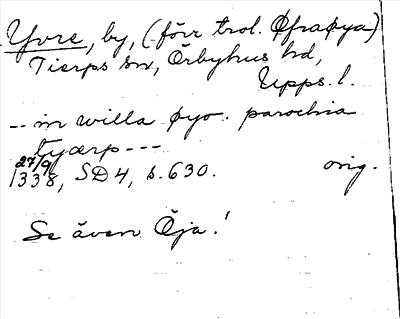 Yvre, by, (förr trol. Øfraøya)
Tierps sn, Örbyhus hd,
Upps. l.
-- in willa øyo. parochia
tyærp ---
27/9
1338, SD 4, s. 630. orig.
Se även Öja!